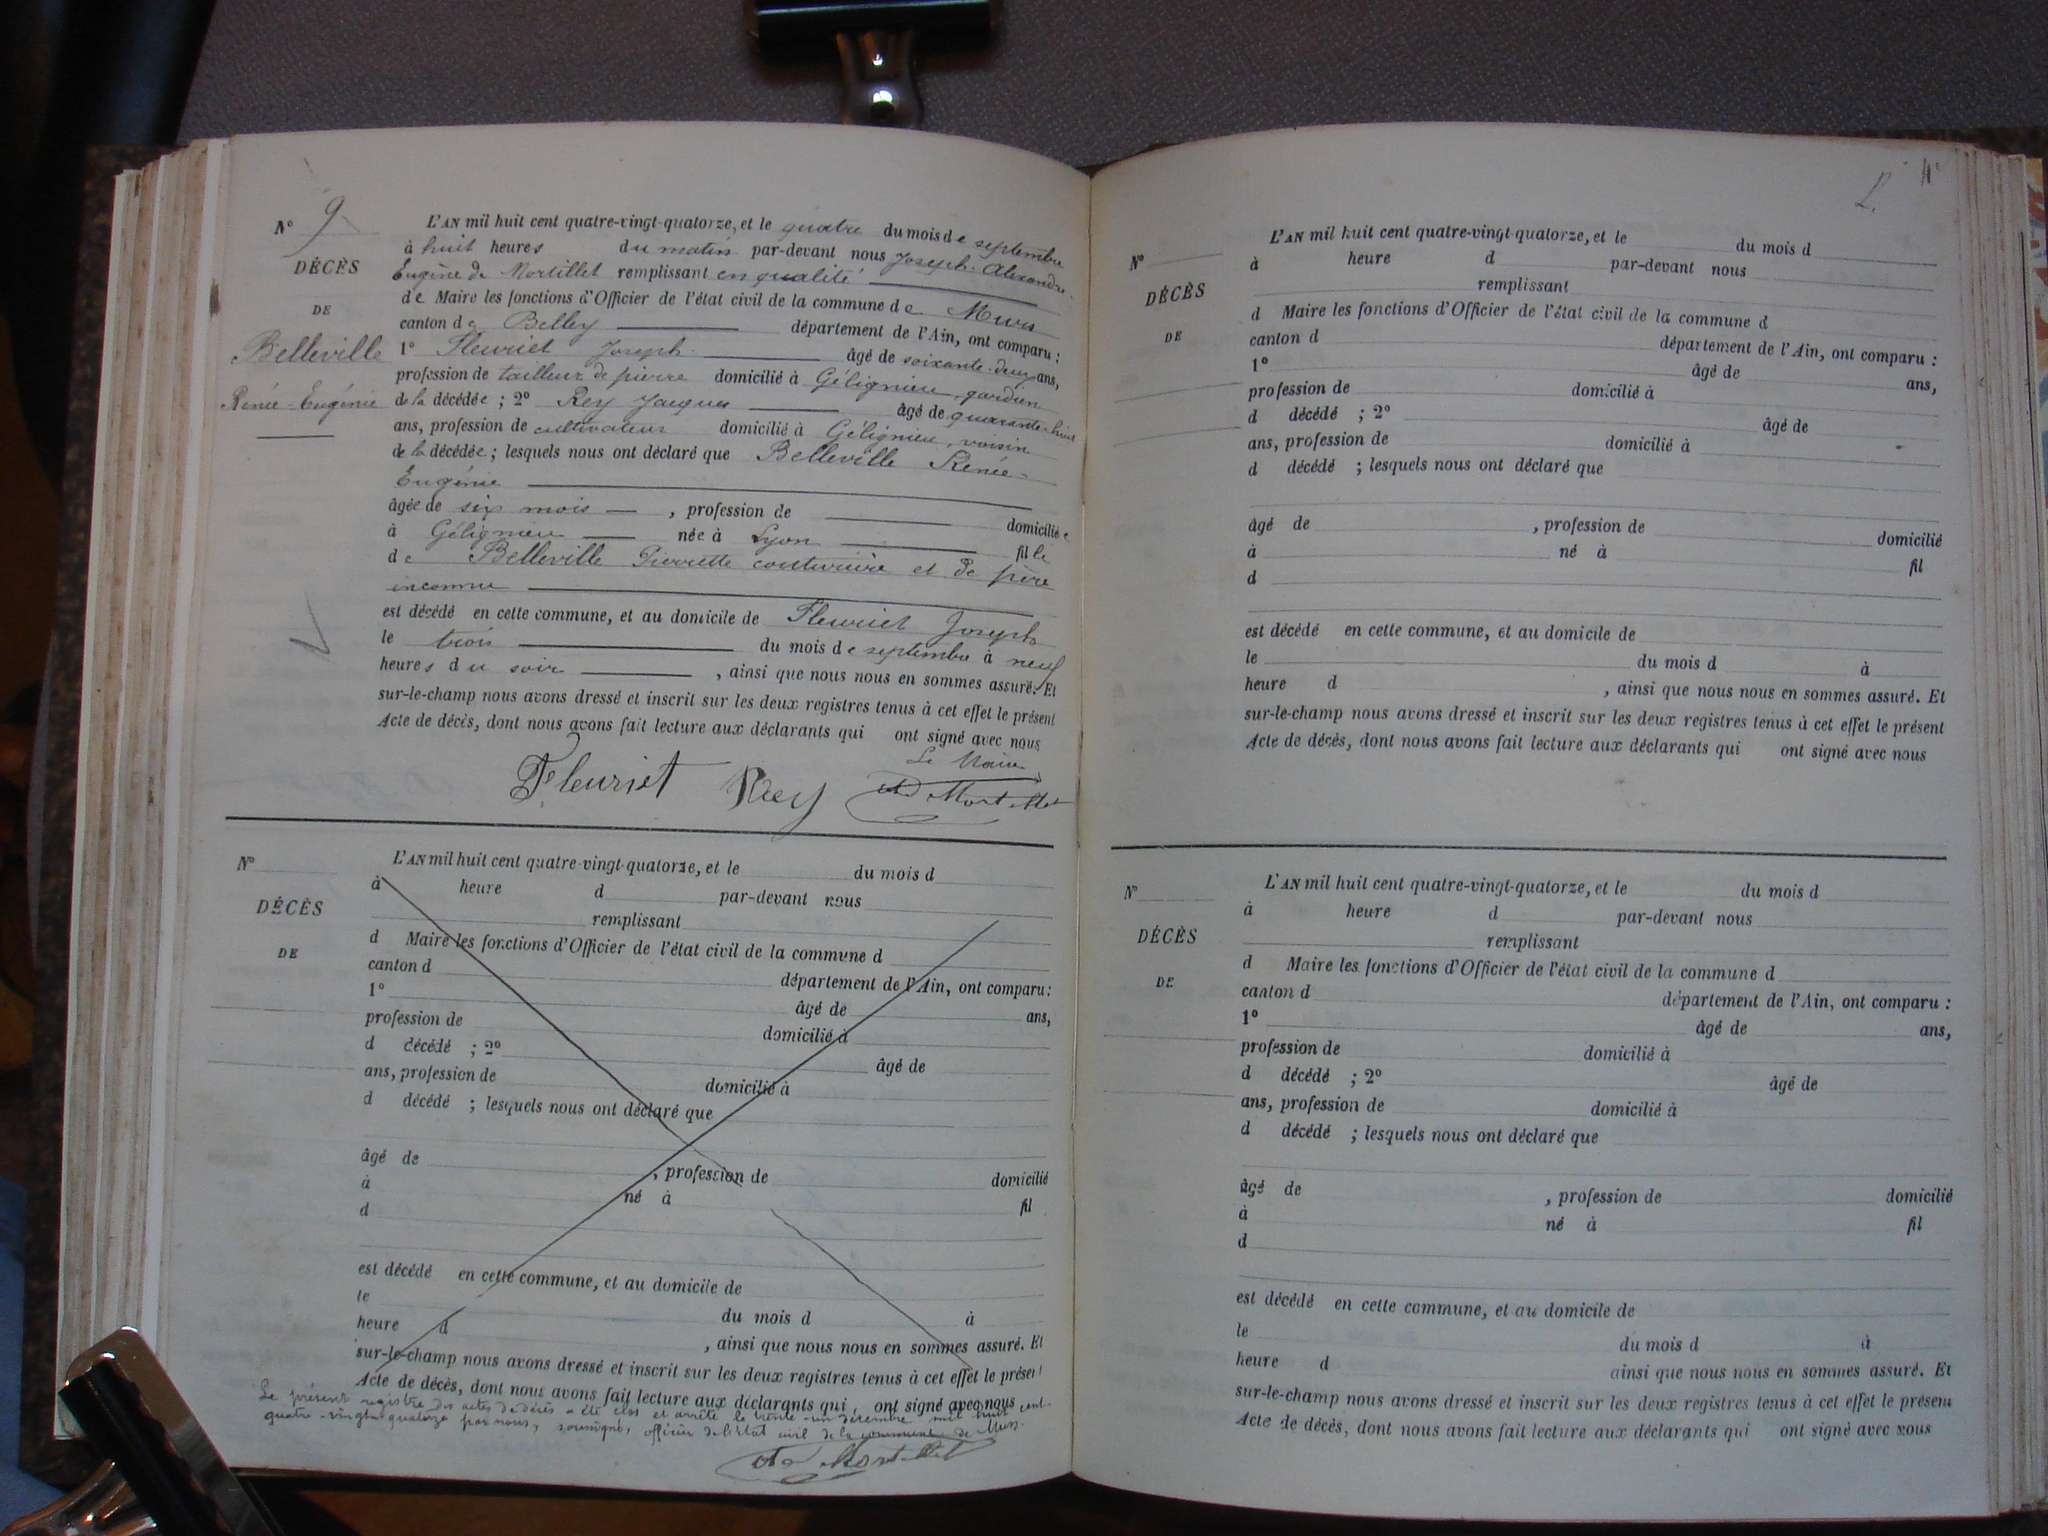 N° 9
DÉCÈS
DE
Belleville
Renée-Eugénie
L'AN mil huit cent quatre-vingt-quatorze, et le quatre du mois de septembre
à huit heures du matin par-devant nous Joseph-Alexandre-
Eugène de Mortillet remplissant en qualité
de Maire les fonctions d'Officier de l'état civil de la commune de Murs
canton de Belley département de l'Ain, ont comparu :
1° Fleuriet Joseph âgé de soixante-deux ans,
profession de tailleur de pierre domicilié à Gélignieu, gardien
de la décédée ; 2° Rey Jacques âgé de quarante-huit
ans, profession de cultivateur domicilié à Gélignieu, voisin
de la décédée ; lesquels nous ont déclaré que Belleville Renée-
Eugénie
âgée de six mois , profession de domiciliée
à Gélignieu née à Lyon fille
de Belleville Pierrette couturière et de père
inconnu
est décédé en cette commune, et au domicile de Fleuriet Joseph
le trois du mois de septembre à neuf
heures du soir , ainsi que nous nous en sommes assuré. Et
sur-le-champ nous avons dressé et inscrit sur les deux registres tenus à cet effet le présent
Acte de décès, dont nous avons fait lecture aux déclarants qui ont signé avec nous
Le Maire
Fleuriet Rey de Mortillet
N°
DÉCÈS
DE
L'AN mil huit cent quatre-vingt-quatorze, et le du mois d
à heure d par-devant nous
remplissant
d Maire les fonctions d'Officier de l'état civil de la commune d
canton d département de l'Ain, ont comparu :
1° âgé de ans,
profession de domicilié à
d décédé ; 2° âgé de
ans, profession de domicilié à
d décédé ; lesquels nous ont déclaré que
âgé de , profession de domicilié
à né à fil
d
est décédé en cette commune, et au domicile de
le du mois d à
heure d , ainsi que nous nous en sommes assuré. Et
sur-le-champ nous avons dressé et inscrit sur les deux registres tenus à cet effet le présent
Acte de décès, dont nous avons fait lecture aux déclarants qui , ont signé avec nous
Le présent registre des actes de décès a été clos et arrêté le trente-un décembre mil huit cent
quatre-vingt-quatorze par nous, soussigné, officier de l'état civil de la commune de Murs.
de Mortillet
N°
DÉCÈS
DE
L'AN mil huit cent quatre-vingt-quatorze, et le du mois d
à heure d par-devant nous
remplissant
d Maire les fonctions d'Officier de l'état civil de la commune d
canton d département de l'Ain, ont comparu :
1° âgé de ans,
profession de domicilié à
d décédé ; 2° âgé de
ans, profession de domicilié à
d décédé ; lesquels nous ont déclaré que
âgé de , profession de domicilié
à né à fil
d
est décédé en cette commune, et au domicile de
le du mois d à
heure d , ainsi que nous nous en sommes assuré. Et
sur-le-champ nous avons dressé et inscrit sur les deux registres tenus à cet effet le présent
Acte de décès, dont nous avons fait lecture aux déclarants qui ont signé avec nous
N°
DÉCÈS
DE
L'AN mil huit cent quatre-vingt-quatorze, et le du mois d
à heure d par-devant nous
remplissant
d Maire les fonctions d'Officier de l'état civil de la commune d
canton d département de l'Ain, ont comparu :
1° âgé de ans,
profession de domicilié à
d décédé ; 2° âgé de
ans, profession de domicilié à
d décédé ; lesquels nous ont déclaré que
âgé de , profession de domicilié
à né à fil
d
est décédé en cette commune, et au domicile de
le du mois d à
heure d ainsi que nous nous en sommes assuré. Et
sur-le-champ nous avons dressé et inscrit sur les deux registres tenus à cet effet le présent
Acte de décès, dont nous avons fait lecture aux déclarants qui ont signé avec nous